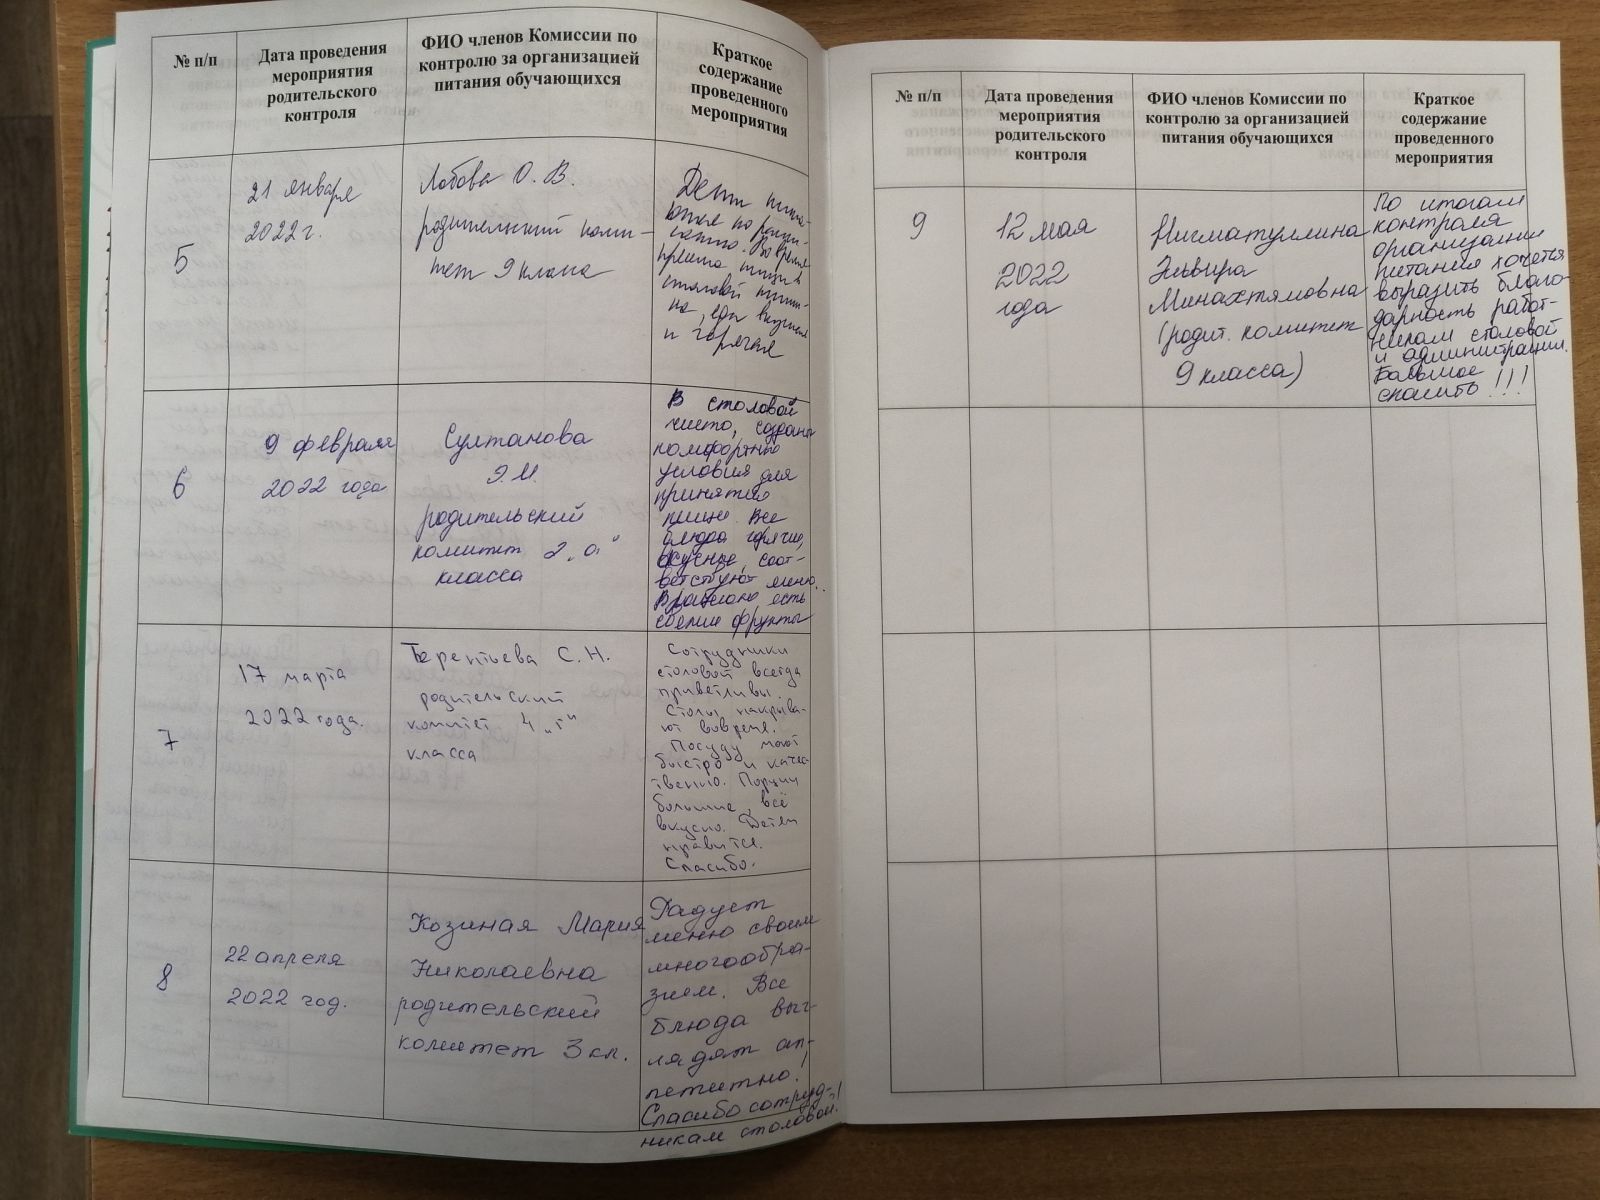 № п/п
Дата проведения
мероприятия
родительского
контроля
ФИО членов Комиссии по
контролю за организацией
питания обучающихся
Краткое
содержание
проведенного
мероприятия
5
21 января
2022 г.
Лобова О. В.
родительский коми-
тет 9 класса
Дети пита-
ются по распи-
санию. Во время
приема пищи в
столовой
и горячая
6
9 февраля
2022 года
Султанова
Э.И.
родительский
комитет 2 „а"
класса
В столовой
чисто, созданы
комфортные
условия для
принятия
пищи. Все
блюда горячие,
вкусные, соот-
ветствуют меню.
В рационе есть
свежие фрукты
7
17 марта
2022 года.
Терентьева С. Н.
родительский
комитет 4 „г"
класса
Сотрудники
столовой всегда
приветливы.
Столы накрыва-
ют вовремя.
Посуду моют
быстро и качес-
твенно. Порции
большие, всё
вкусно. Детям
нравится.
Спасибо.
8
22 апреля
2022 год.
Козиная Мария
Николаевна
родительский
комитет 3 кл.
Радует
меню своим
многообра-
зием. Все
блюда выг-
лядят ап-
петитно!
Спасибо сотруд-
никам столовой!
№ п/п
Дата проведения
мероприятия
родительского
контроля
ФИО членов Комиссии по
контролю за организацией
питания обучающихся
Краткое
содержание
проведенного
мероприятия
9
12 мая
2022
года
Нигматуллина
Эльвира
Минахтямовна
(родит. комитет
9 класса)
По итогам
контроля
организации
питания хочется
выразить благо-
дарность работ-
никам столовой
и администрации.
Большое
спасибо !!!